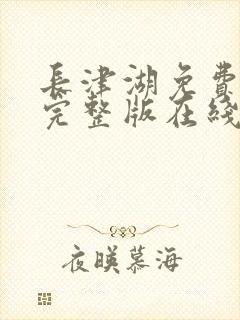 長津湖免費
完整版在綫
夜暎慕海